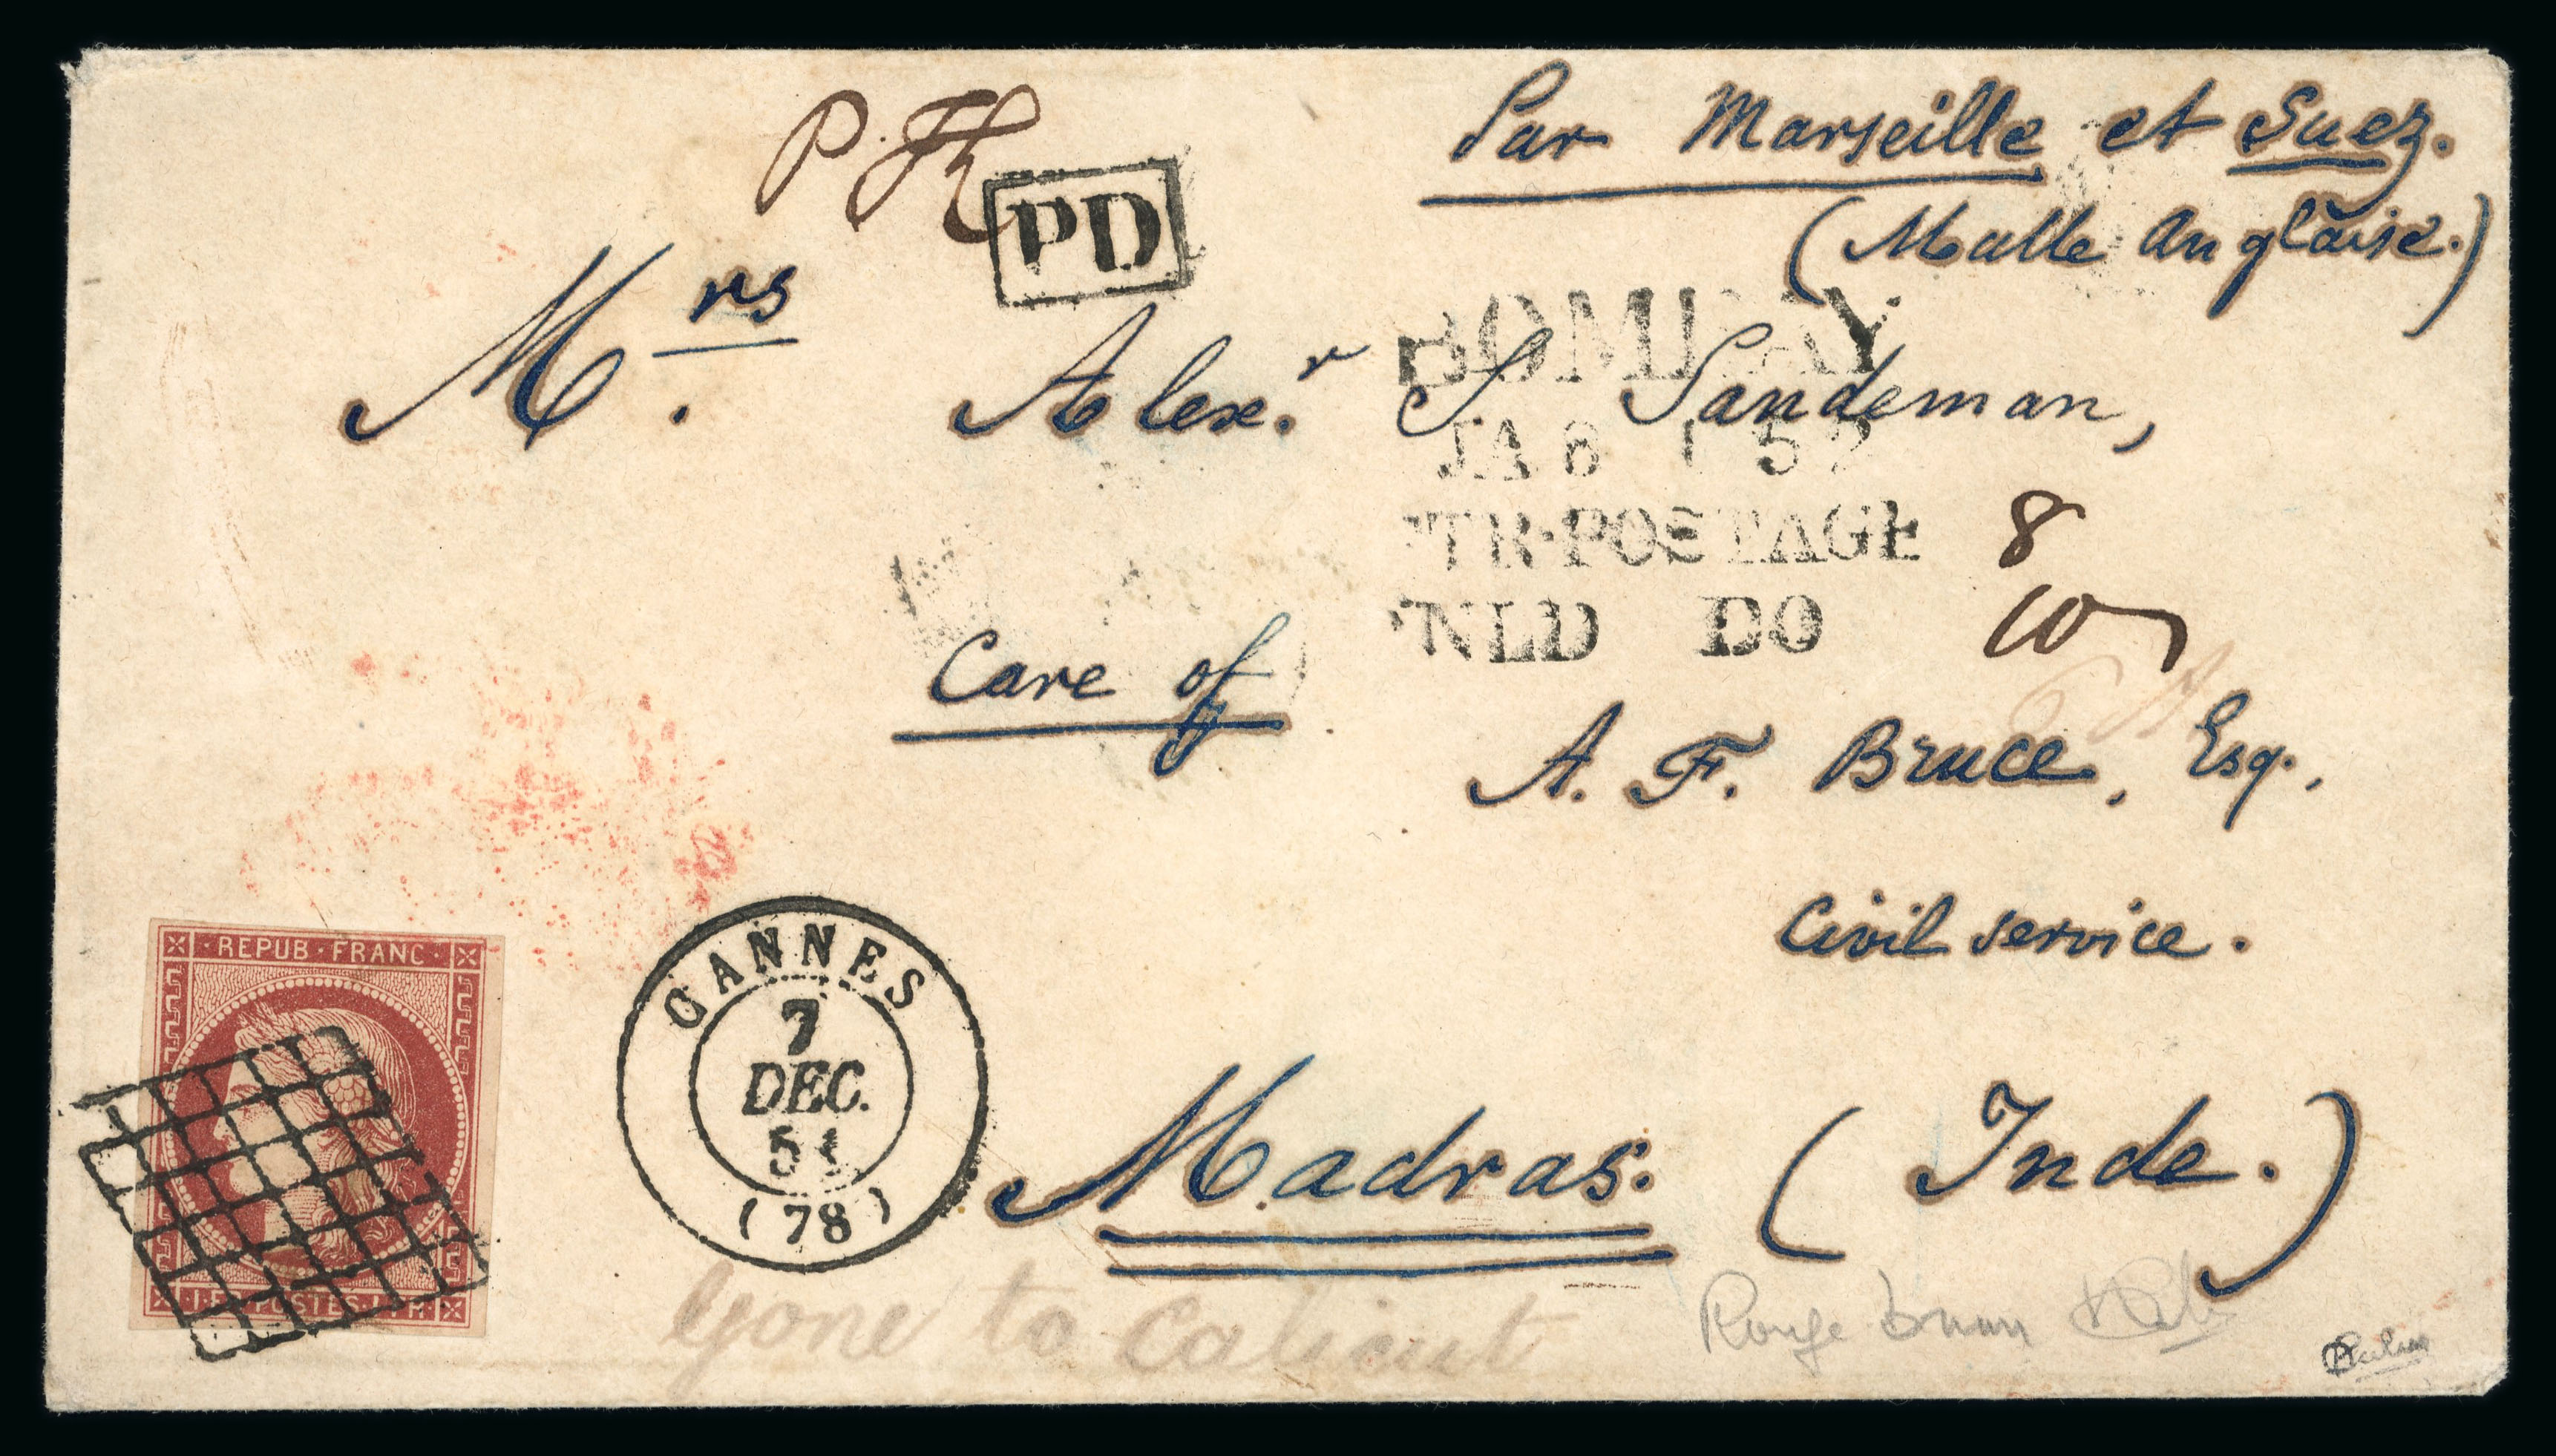 Par Marseille et Suez.
(Malle Anglaise.)
PD
Mrs. Alexr. S Sandeman,
BOMBAY
JA 8 1 52
TR·POSTAGE 8
NLD DO 10
Care of
A. F. Bruce, Esq.,
Civil service.
REPUB·FRANC·
CANNES
7
DEC.
51
(78)
Madras. (Inde.)
1F·POSTES·1FR
Gone to Calicut
Rouge brun